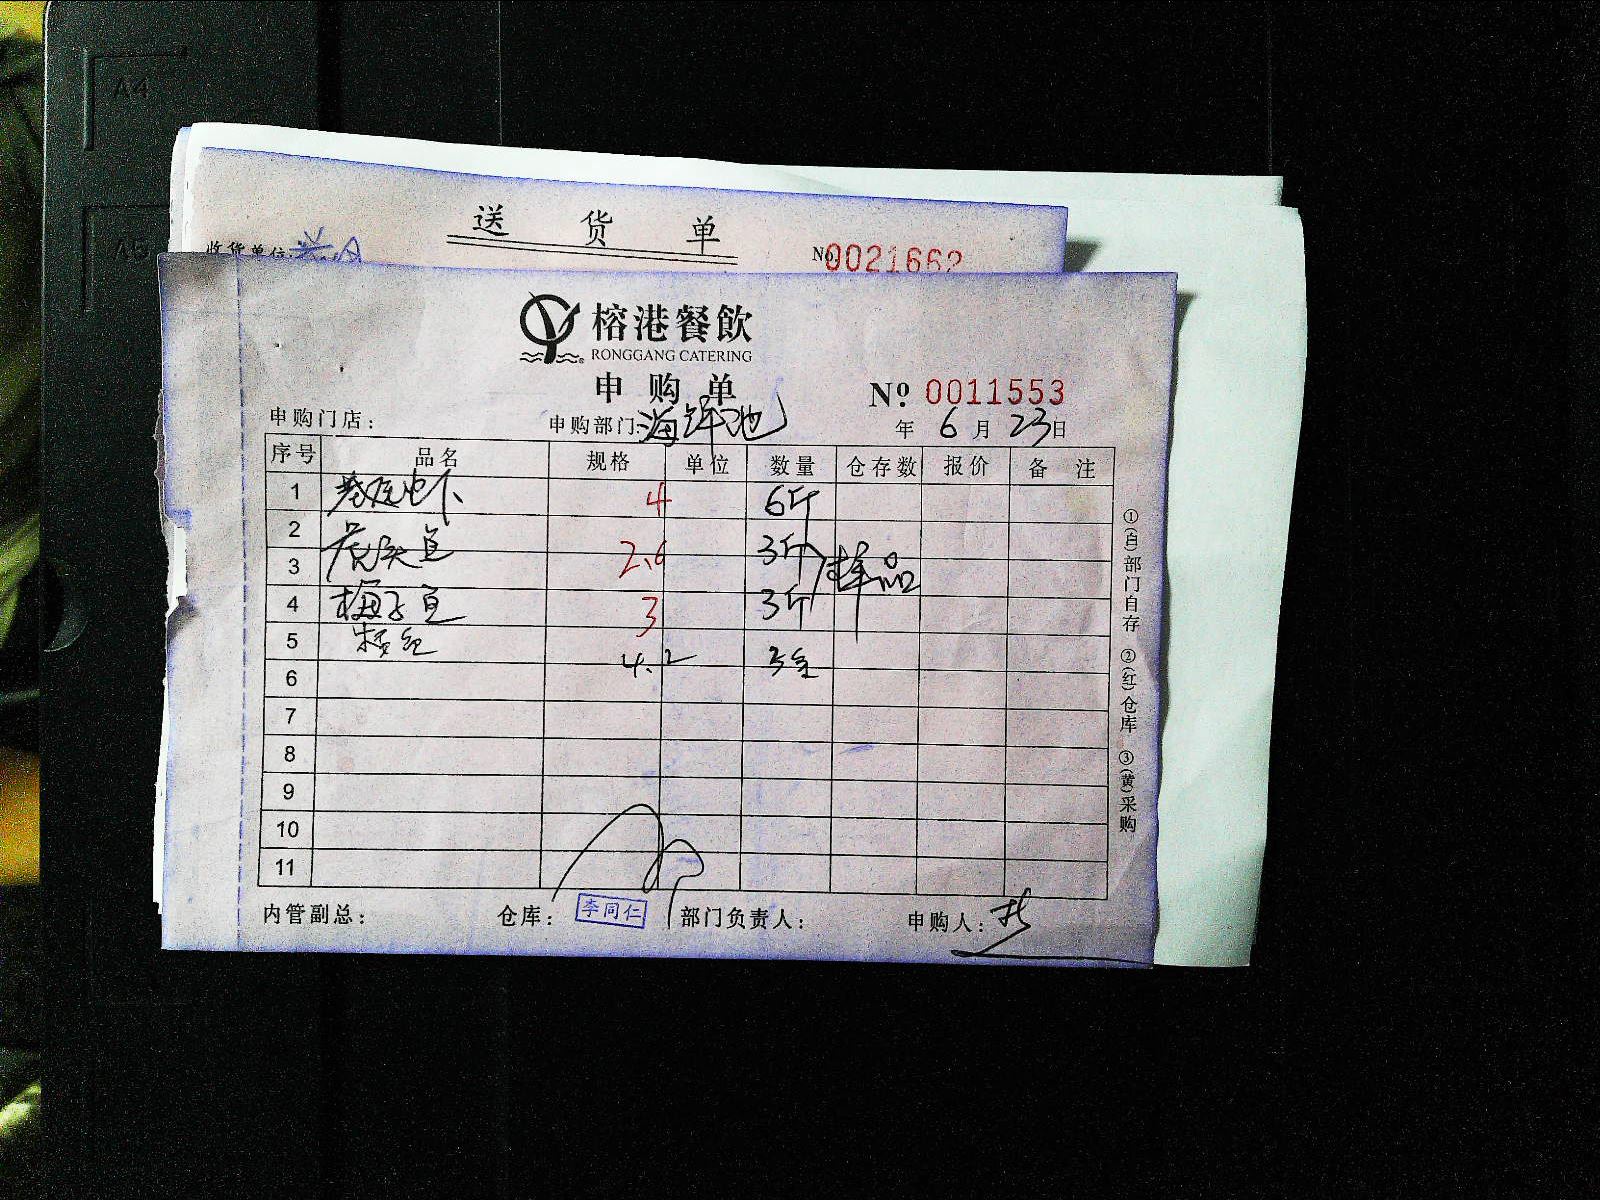 A4
A5
送货单
收货单位:
No.0021662
榕港餐飲
RONGGANG CATERING
申购单
№ 0011553
申购门店:
申购部门:海鲜池
年 6 月 23 日
序号 品名 规格 单位 数量 仓存数 报价 备注
1 4 6斤
2 虎头 2.6 3斤 样品
3
4 梅子 3 3斤
5 4.2 3
6
7
8
9
10
11
①(白)部门自存 ②(红)仓库 ③(黄)采购
内管副总: 仓库: 李同仁 部门负责人: 申购人: